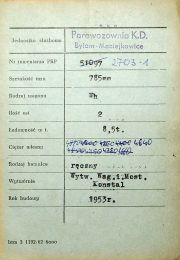 Jednostka służbowa
Parowozownia K.D.
Bytom-Maciejkowice
Nr inwentarza PKP 51097 2703-1
Szerokość toru 785mm
Rodzaj wagonu Wh
Ilość osi 2
Ładowność w t. 8,5t.
Ciężar własny 4640
Rodzaj hamulca ręczny
Wytwórnia Wytw. Wag. i Most.
Konstal
Rok budowy 1953r.